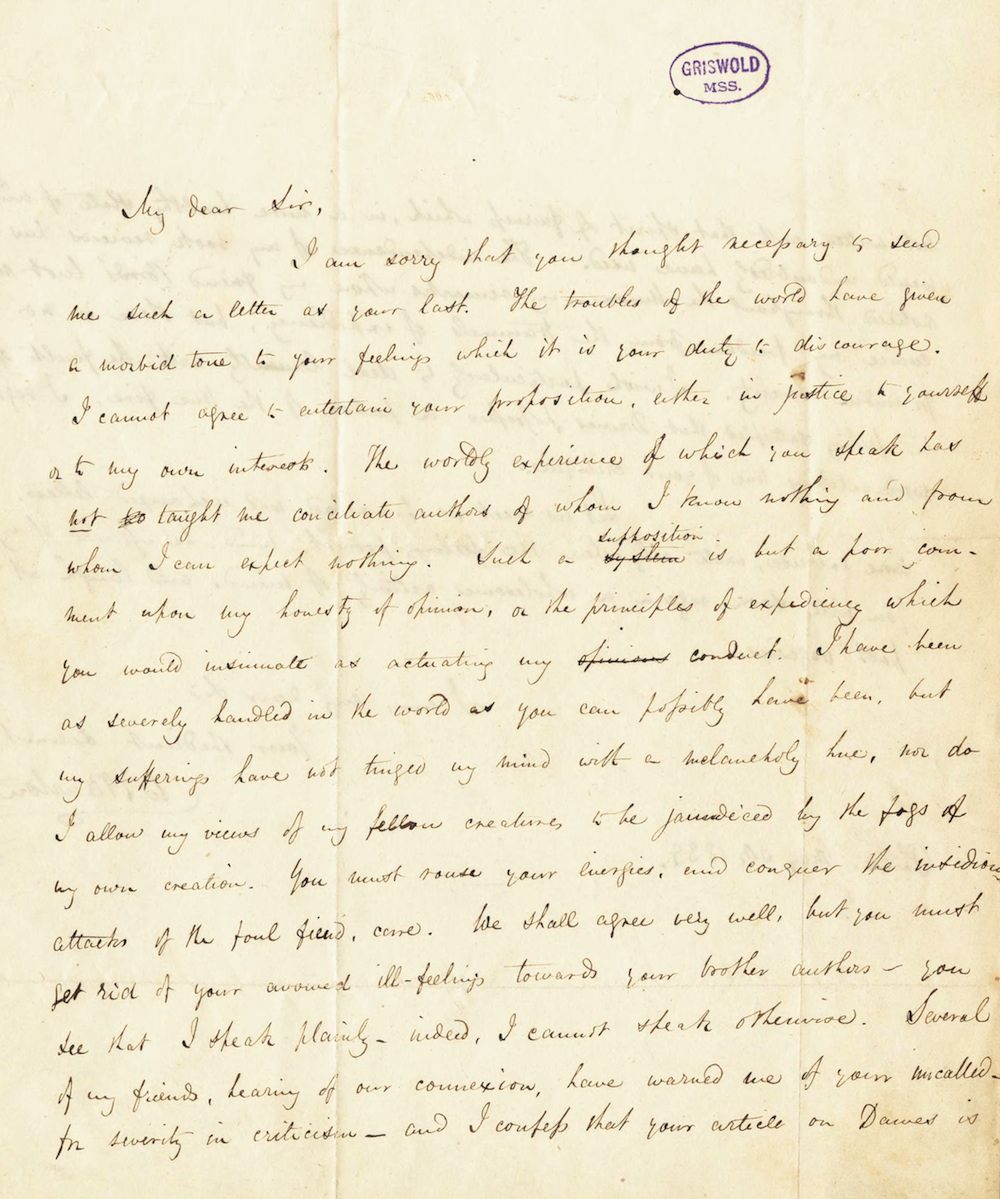 GRISWOLD
MSS.
My dear Sir,
I am sorry that you thought necessary to send
me such a letter as your last. The troubles of the world have given
a morbid tone to your feelings which it is your duty to discourage.
I cannot agree to entertain your proposition, either in justice to yourself
or to my own interests. The worldly experience of which you speak has
not so taught me conciliate authors of whom I know nothing and from
supposition
whom I can expect nothing. Such a system is but a poor com-
ment upon my honesty of opinion, or the principles of expediency which
you would insinuate as actuating my opinions conduct. I have been
as severely handled in the world as you can possibly have been, but
my sufferings have not tinged my mind with a melancholy hue, nor do
I allow my views of my fellow creatures to be jaundiced by the fogs of
my own creation. You must rouse your energies, and conquer the insidious
attacks of the foul fiend, care. We shall agree very well, but you must
get rid of your avowed ill-feelings towards your brother authors — you
see that I speak plainly — indeed, I cannot speak otherwise. Several
of my friends, hearing of our connexion, have warned me of your uncalled-
for severity in criticism — and I confess that your article on Dawes is